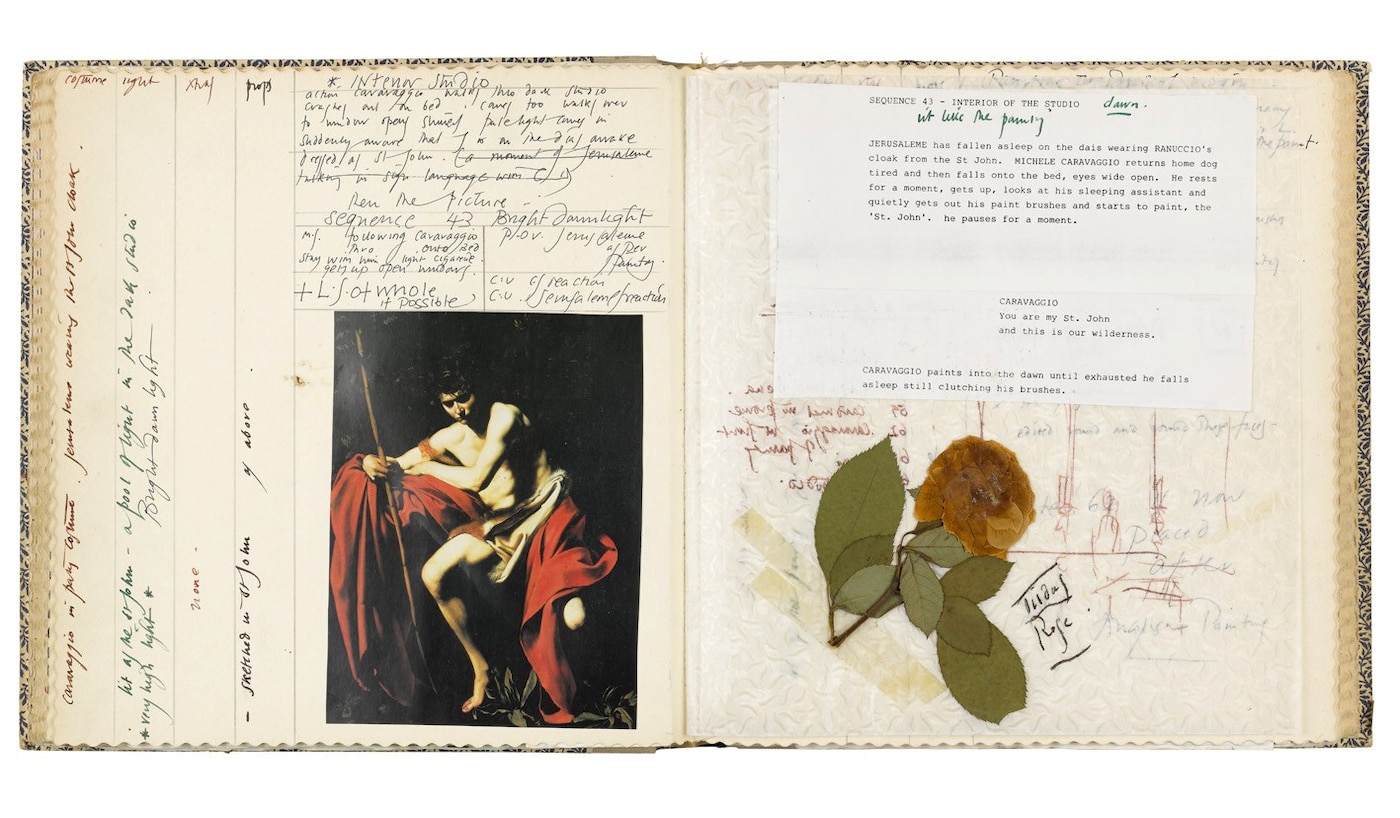 costume light xtras props
caravaggio in party costume. Jerusaleme wearing the St John cloak.
lit as the St John - a pool of light in the dark studio
* very high light * Bright dawn light
none -
- sketched in St John as above.
*. Interior Studio
action caravaggio walks thro dark studio
crashes out on bed. comes too walks over
to window opens shutters pale light comes in
suddenly aware that J is on the dais awake
dressed as St John. (a moment of Jerusaleme
talking in sign language with C)
then the picture -
sequence 43 Bright dawnlight
m.s. following caravaggio
thro onto bed
stay with him light cigarette.
gets up open windows.
+ L.S. of whole
if possible
P.O.V. Jerusaleme
as per
Painting.
C.U. C's reaction
C.U. Jerusaleme reaction
SEQUENCE 43 - INTERIOR OF THE STUDIO dawn.
lit like the painting
JERUSALEME has fallen asleep on the dais wearing RANUCCIO's
cloak from the St John. MICHELE CARAVAGGIO returns home dog
tired and then falls onto the bed, eyes wide open. He rests
for a moment, gets up, looks at his sleeping assistant and
quietly gets out his paint brushes and starts to paint, the
'St. John'. he pauses for a moment.
CARAVAGGIO
You are my St. John
and this is our wilderness.
CARAVAGGIO paints into the dawn until exhausted he falls
asleep still clutching his brushes.
now
placed
after
Painting
Tildas
Rose